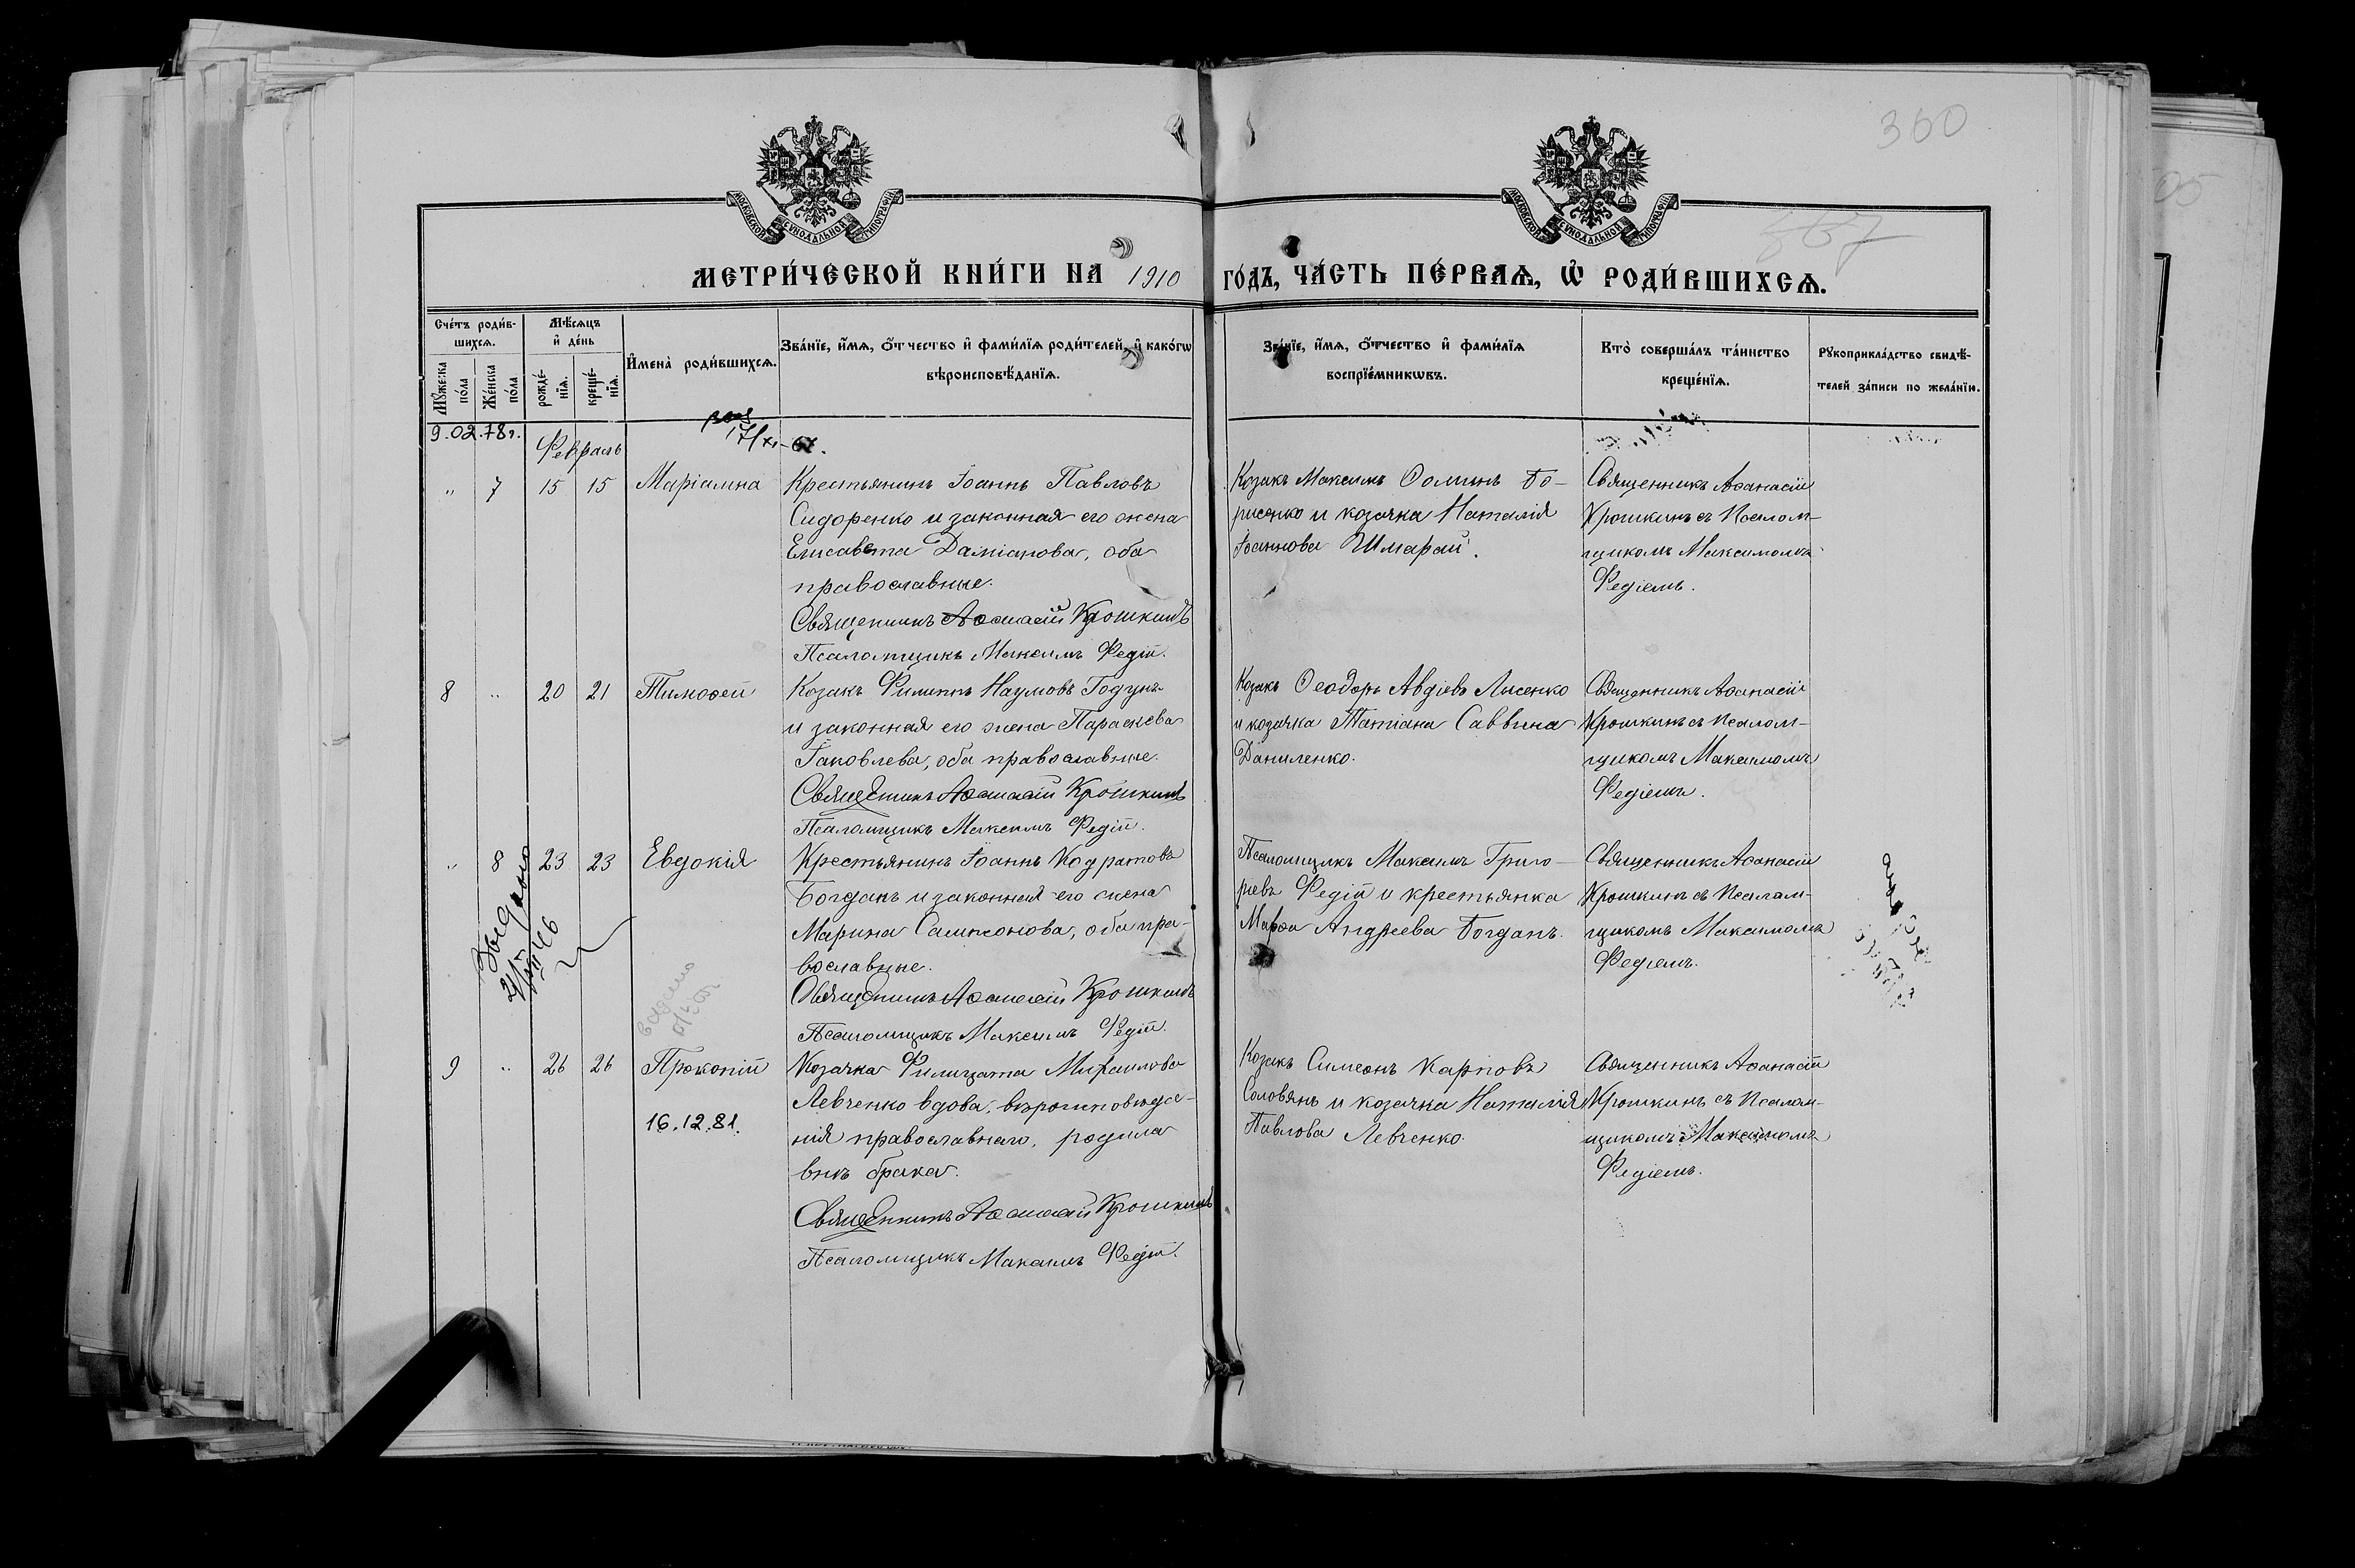 360
МОСКОВСКОЙ СѴНОДАЛЬНОЙ ТИПОГРАФІИ
МОСКОВСКОЙ СѴНОДАЛЬНОЙ ТИПОГРАФІИ
МЕТРИ́ЧЕСКОЙ КНИ́ГИ НА 1910 ГО́ДЪ, ЧА́СТЬ ПЕ́РВАѦ, Ѡ҆ РОДИ́ВШИХСѦ.
Сче́тъ роди́в-
шихсѧ.
Мꙋ́жеска по́ла
Же́нска по́ла
Мѣ́сѧцъ и҆ де́нь
рожде́-нїѧ.
креще́-нїѧ.
И҆мена̀ роди́вшихсѧ.
Зва́нїе, и҆́мѧ, ѻ҆́тчество и҆ фами́лїѧ роди́телей, и҆ како́гѡ
вѣроисповѣ́данїѧ.
Зва́нїе, и҆́мѧ, ѻ҆́тчество и҆ фами́лїѧ
воспрїе́мникѡвъ.
Кто̀ соверша́лъ та́инство
креще́нїѧ.
Рꙋкоприкла́дство свидѣ́-
телей за́писи по жела́нїю.
9.02.78г.
Февраль
" 7 15 15 Маріамна
Крестьянинъ Іоаннъ Павловъ
Сидоренко и законная его жена
Елисавета Даміанова, оба
православные.
Священникъ Аѳанасій Крошкинъ
Псаломщикъ Максимъ Федій.
Козакъ Максимъ Ѳоминъ Бо-
рисенко и козачка Наталія
Іоаннова Шмарай.
Священникъ Аѳанасій
Крошкинъ съ Псалом-
щикомъ Максимомъ
Федіемъ.
8 " 20 21 Тимоѳей
Козакъ Филиппъ Наумовъ Годунъ
и законная его жена Параскева
Іаковлева, оба православные.
Священникъ Аѳанасій Крошкинъ
Псаломщикъ Максимъ Федій.
Козакъ Ѳеодоръ Авдіевъ Лисенко
и козачка Татіана Саввина
Даниленко.
Священникъ Аѳанасій
Крошкинъ съ Псалом-
щикомъ Максимомъ
Федіемъ.
" 8 23 23 Евдокія
Крестьянинъ Іоаннъ Кодратовъ
Богданъ и законная его жена
Марина Сампсонова, оба пра-
вославные.
Священникъ Аѳанасій Крошкинъ
Псаломщикъ Максимъ Федій.
Псаломщикъ Максимъ Григо-
ріевъ Федій и крестьянка
Марѳа Андреева Богданъ.
Священникъ Аѳанасій
Крошкинъ съ Псалом-
щикомъ Максимомъ
Федіемъ.
9 " 26 26 Прокопій
16.12.81.
Козачка Филицата Михаилова
Левченко вдова, вѣроисповѣда-
нія православнаго, родила
внѣ брака.
Священникъ Аѳанасій Крошкинъ
Псаломщикъ Максимъ Федій.
Козакъ Симеонъ Карповъ
Соловянъ и козачка Наталія
Павлова Левченко.
Священникъ Аѳанасій
Крошкинъ съ Псалом-
щикомъ Максимомъ
Федіемъ.